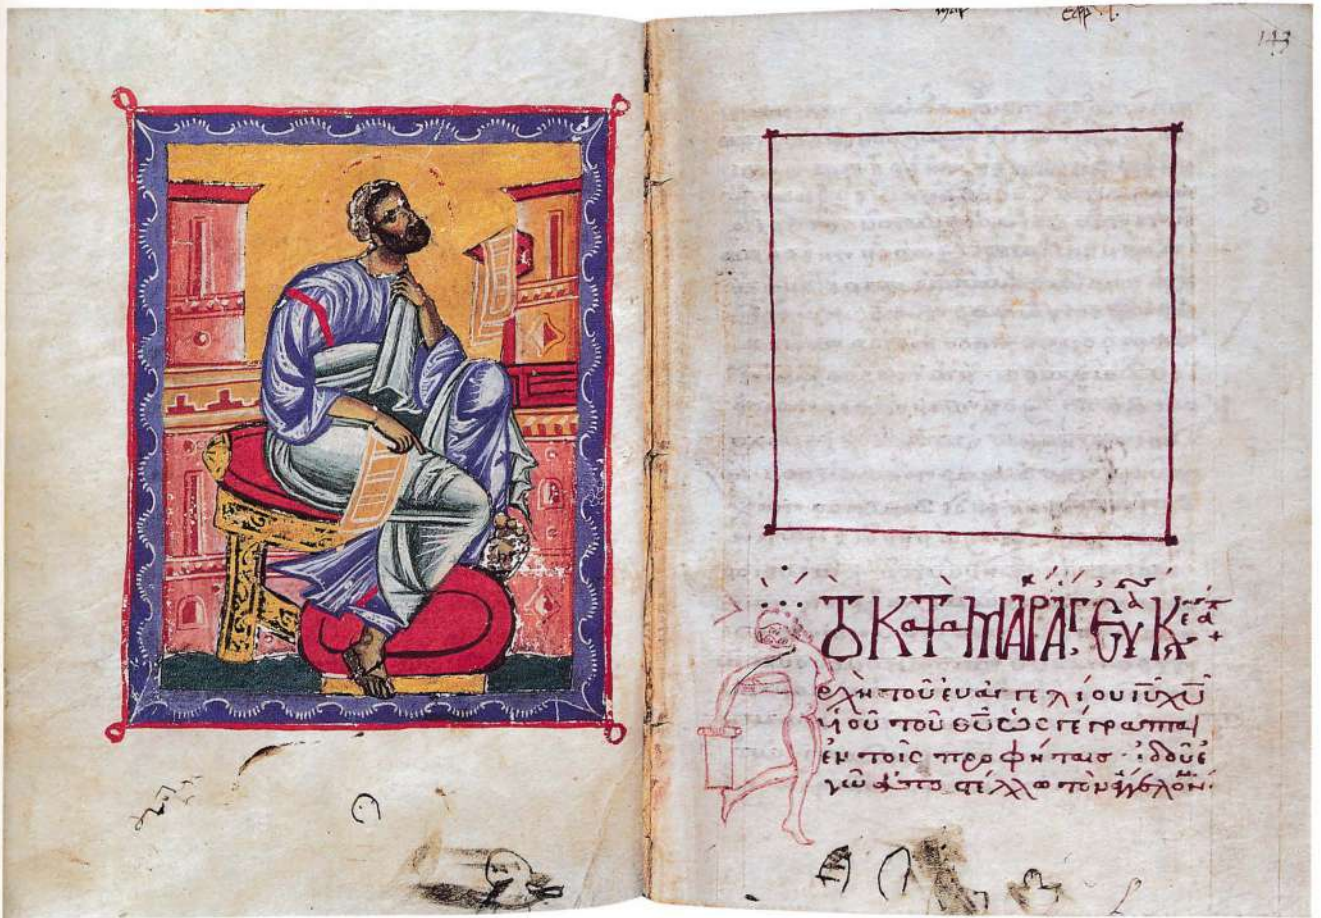 143
ΤΟ ΚΑΤΑ ΜΑΡ ΑΓ ΕΥ ΚΕ
ρχὴ τοῦ εὐαγγελίου ἰῡ χῡ
υἱοῦ τοῦ θῡ ὡς γέγραπται
ἐν τοῖς προφήταις · ἰδοὺ ἐ
γὼ ἀποστέλλω τὸν ἄγγελόν ·